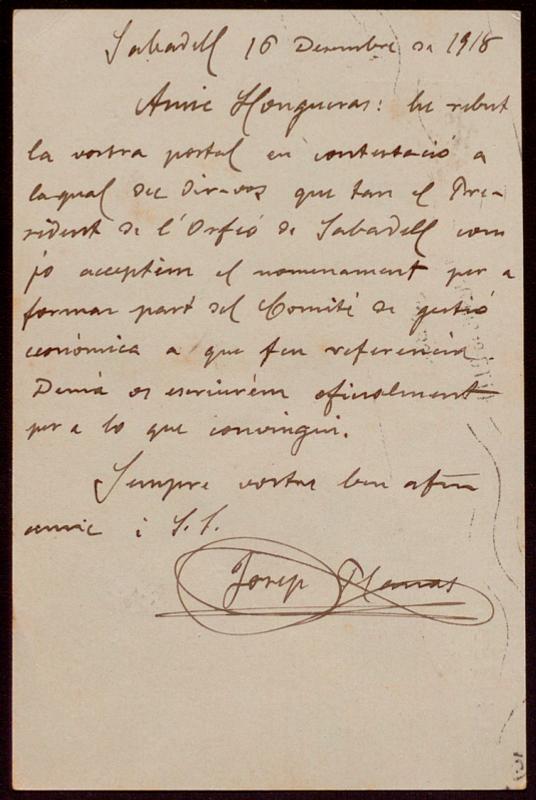 Sabadell 16 Desembre de 1918
Amic Llongueras: he rebut
la vostra postal en contestació a
laqual dec dir-vos que tan el Pre-
sident de l'Orfeó de Sabadell com
jo acceptèm el nomenament per a
formar part del Comité de gestió
econòmica a que feu referencia
Demà os escriurèm oficialment
per a lo que convingui.
Sempre vostre bon afm
amic i S.S.
Josep Planas